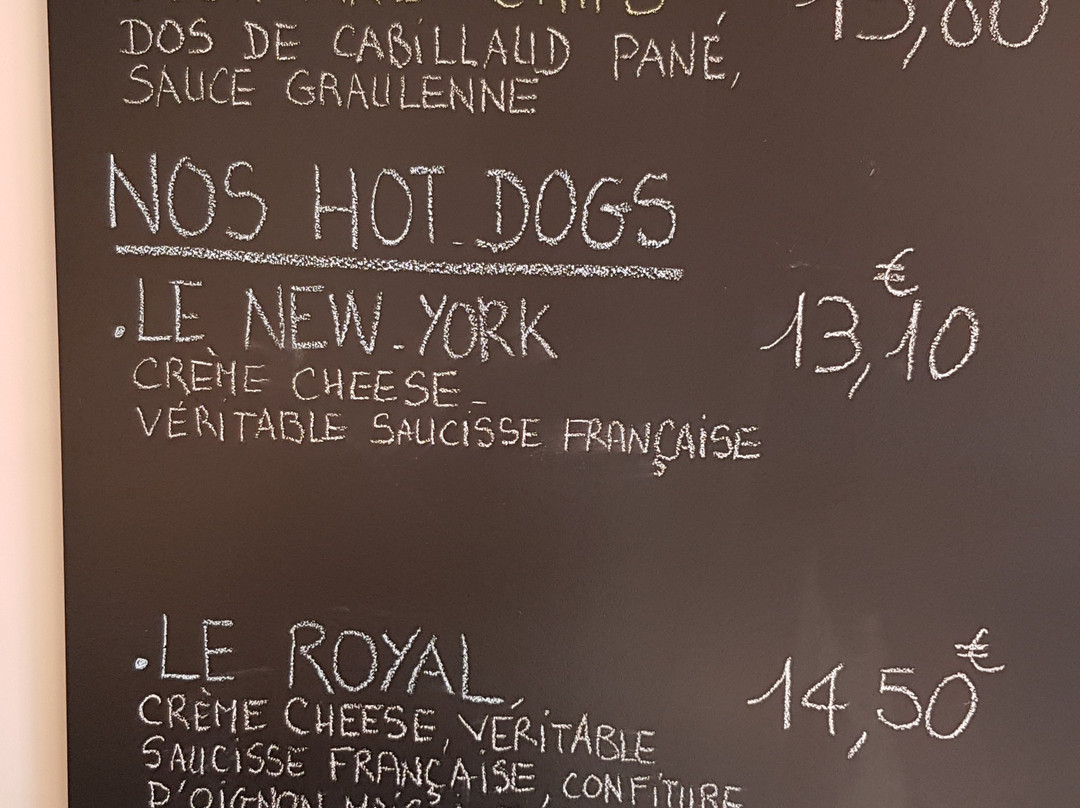 DOS DE CABILLAUD PANÉ,
SAUCE GRAULENNE
NOS HOT-DOGS
.LE NEW-YORK 13,10€
CRÈME CHEESE -
VÉRITABLE SAUCISSE FRANÇAISE
.LE ROYAL 14,50€
CRÈME CHEESE, VÉRITABLE
SAUCISSE FRANÇAISE, CONFITURE
D'OIGNON